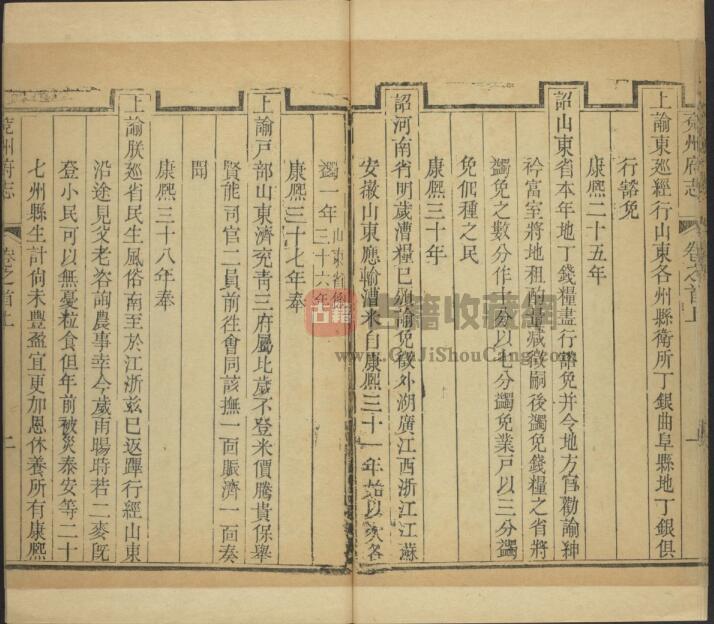 兖州府志
卷之首上
一
上諭東巡經行山東各州縣衛所丁銀曲阜縣地丁銀俱
行豁免
康熙二十五年
詔山東省本年地丁錢糧盡行豁免并令地方官勸諭紳
衿富室將地租酌量減徵嗣後蠲免錢糧之省將
蠲免之數分作十分以七分蠲免業戶以三分蠲
免佃種之民
康熙三十年
詔河南省明歲漕糧已頒諭免徵外湖廣江西浙江江蘇
安徽山東應輸漕米自康熙三十一年始以次各
蠲一年山東省係三十六年
康熙三十七年奉
上諭戶部山東濟兖青三府屬比歲不登米價騰貴保舉
賢能司官二員前往會同該撫一面賑濟一面奏
聞
康熙三十八年奉
上諭朕巡省民生風俗南至於江浙茲已返蹕行經山東
沿途見父老咨詢農事幸今歲雨暘時若二麥旣
登小民可以無憂粒食但年前被災泰安等二十
七州縣生計尙未豐盈宜更加恩休養所有康熙
兖州府志
卷之首上
二
古籍
古籍收藏網
www.GuJiShouCang.com